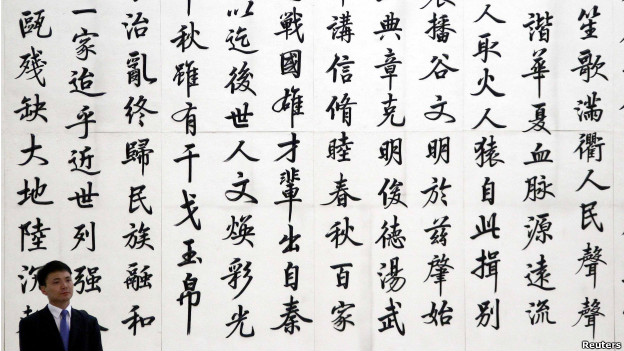 笙歌滿衢人民聲聲
諧華夏血脈源遠流
人取火人猿自此揖別
播谷文明於茲肇始
典章克明俊德湯武
講信脩睦春秋百家
戰國雄才輩出自秦
以迄後世人文煥彩光
秋雖有干戈玉帛
治亂終歸民族融和
一家迨乎近世列强
甌殘缺大地陸沉
Reuters